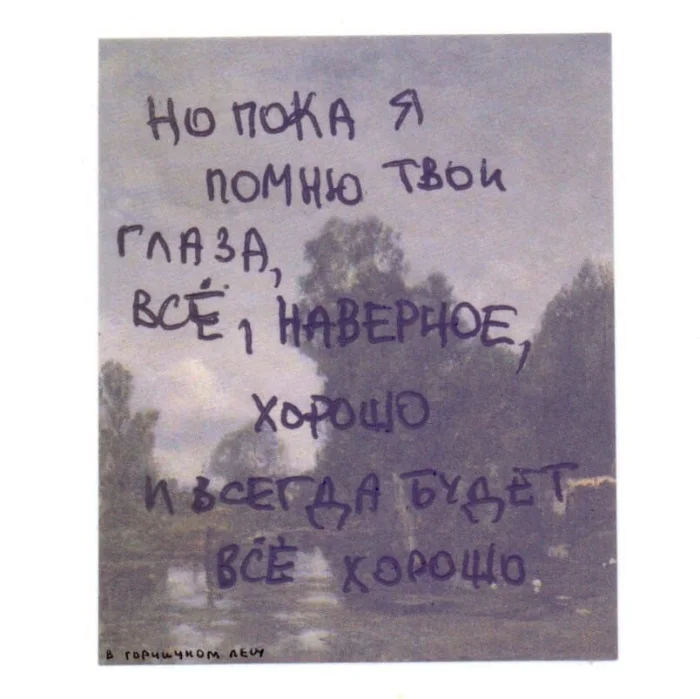 НО ПОКА Я
ПОМНЮ ТВОИ
ГЛАЗА,
ВСЁ, НАВЕРНОЕ,
ХОРОШО
И ВСЕГДА БУДЕТ
ВСЁ ХОРОШО
В ГОРЧИЧНОМ ЛЕСУ